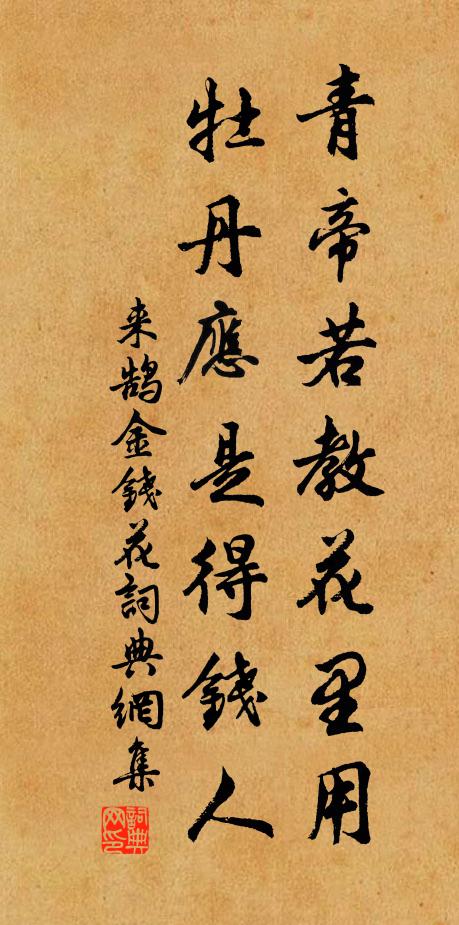 青帝若教花里用
牡丹應是得錢人
来鹄金錢花詞典網集
詞典網印